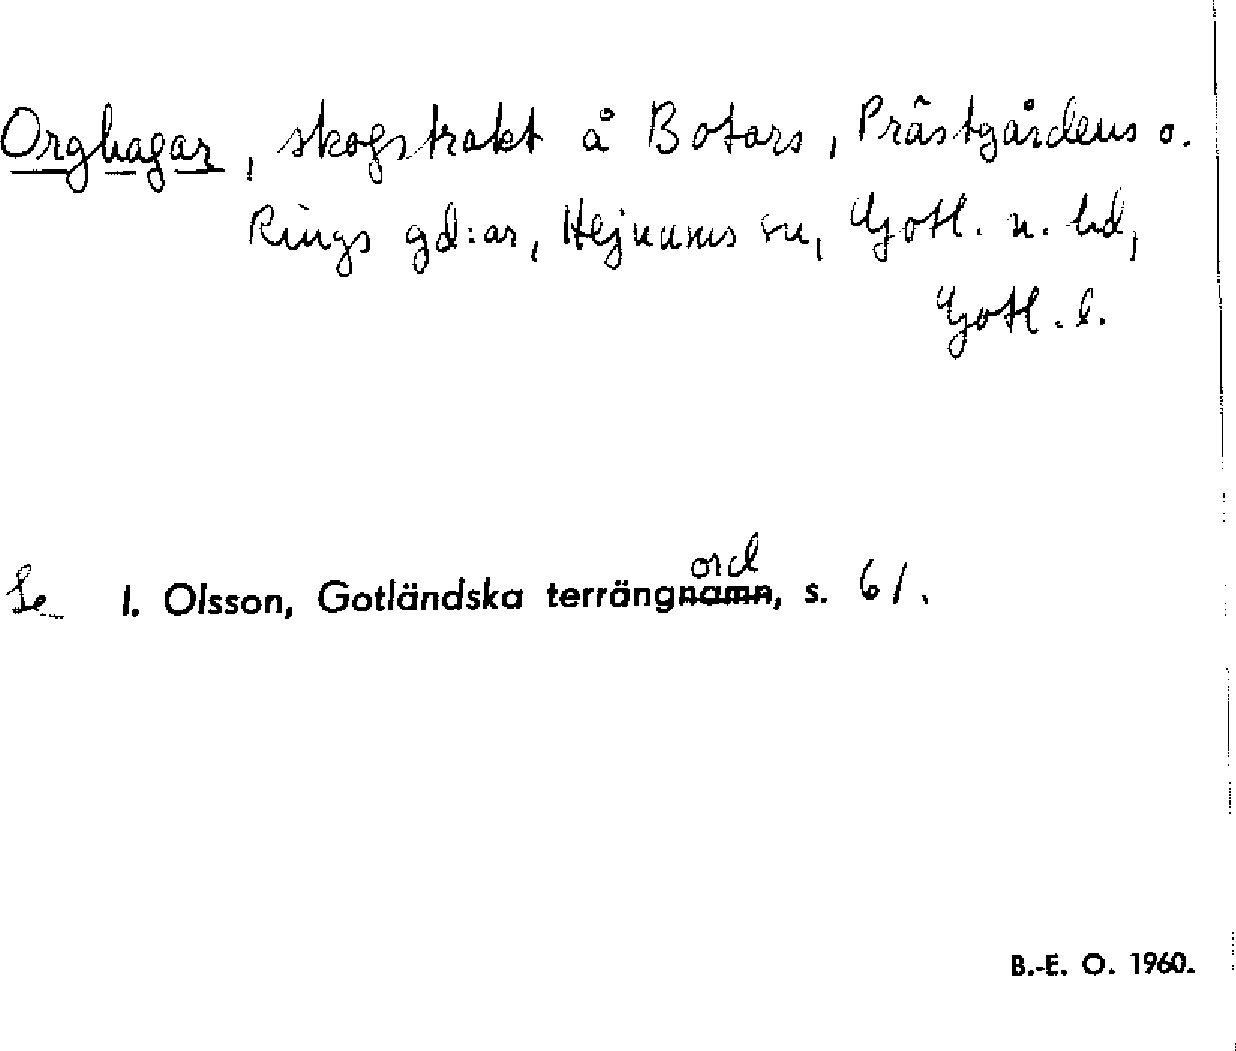 Orghagar, skogstrakt å Botars, Prästgårdens o.
Rings gd:ar, Hejnums sn, Gotl. n. hd,
Gotl. l.
Se I. Olsson, Gotländska terrängnamn, s. 61.
ord
B.-E. O. 1960.